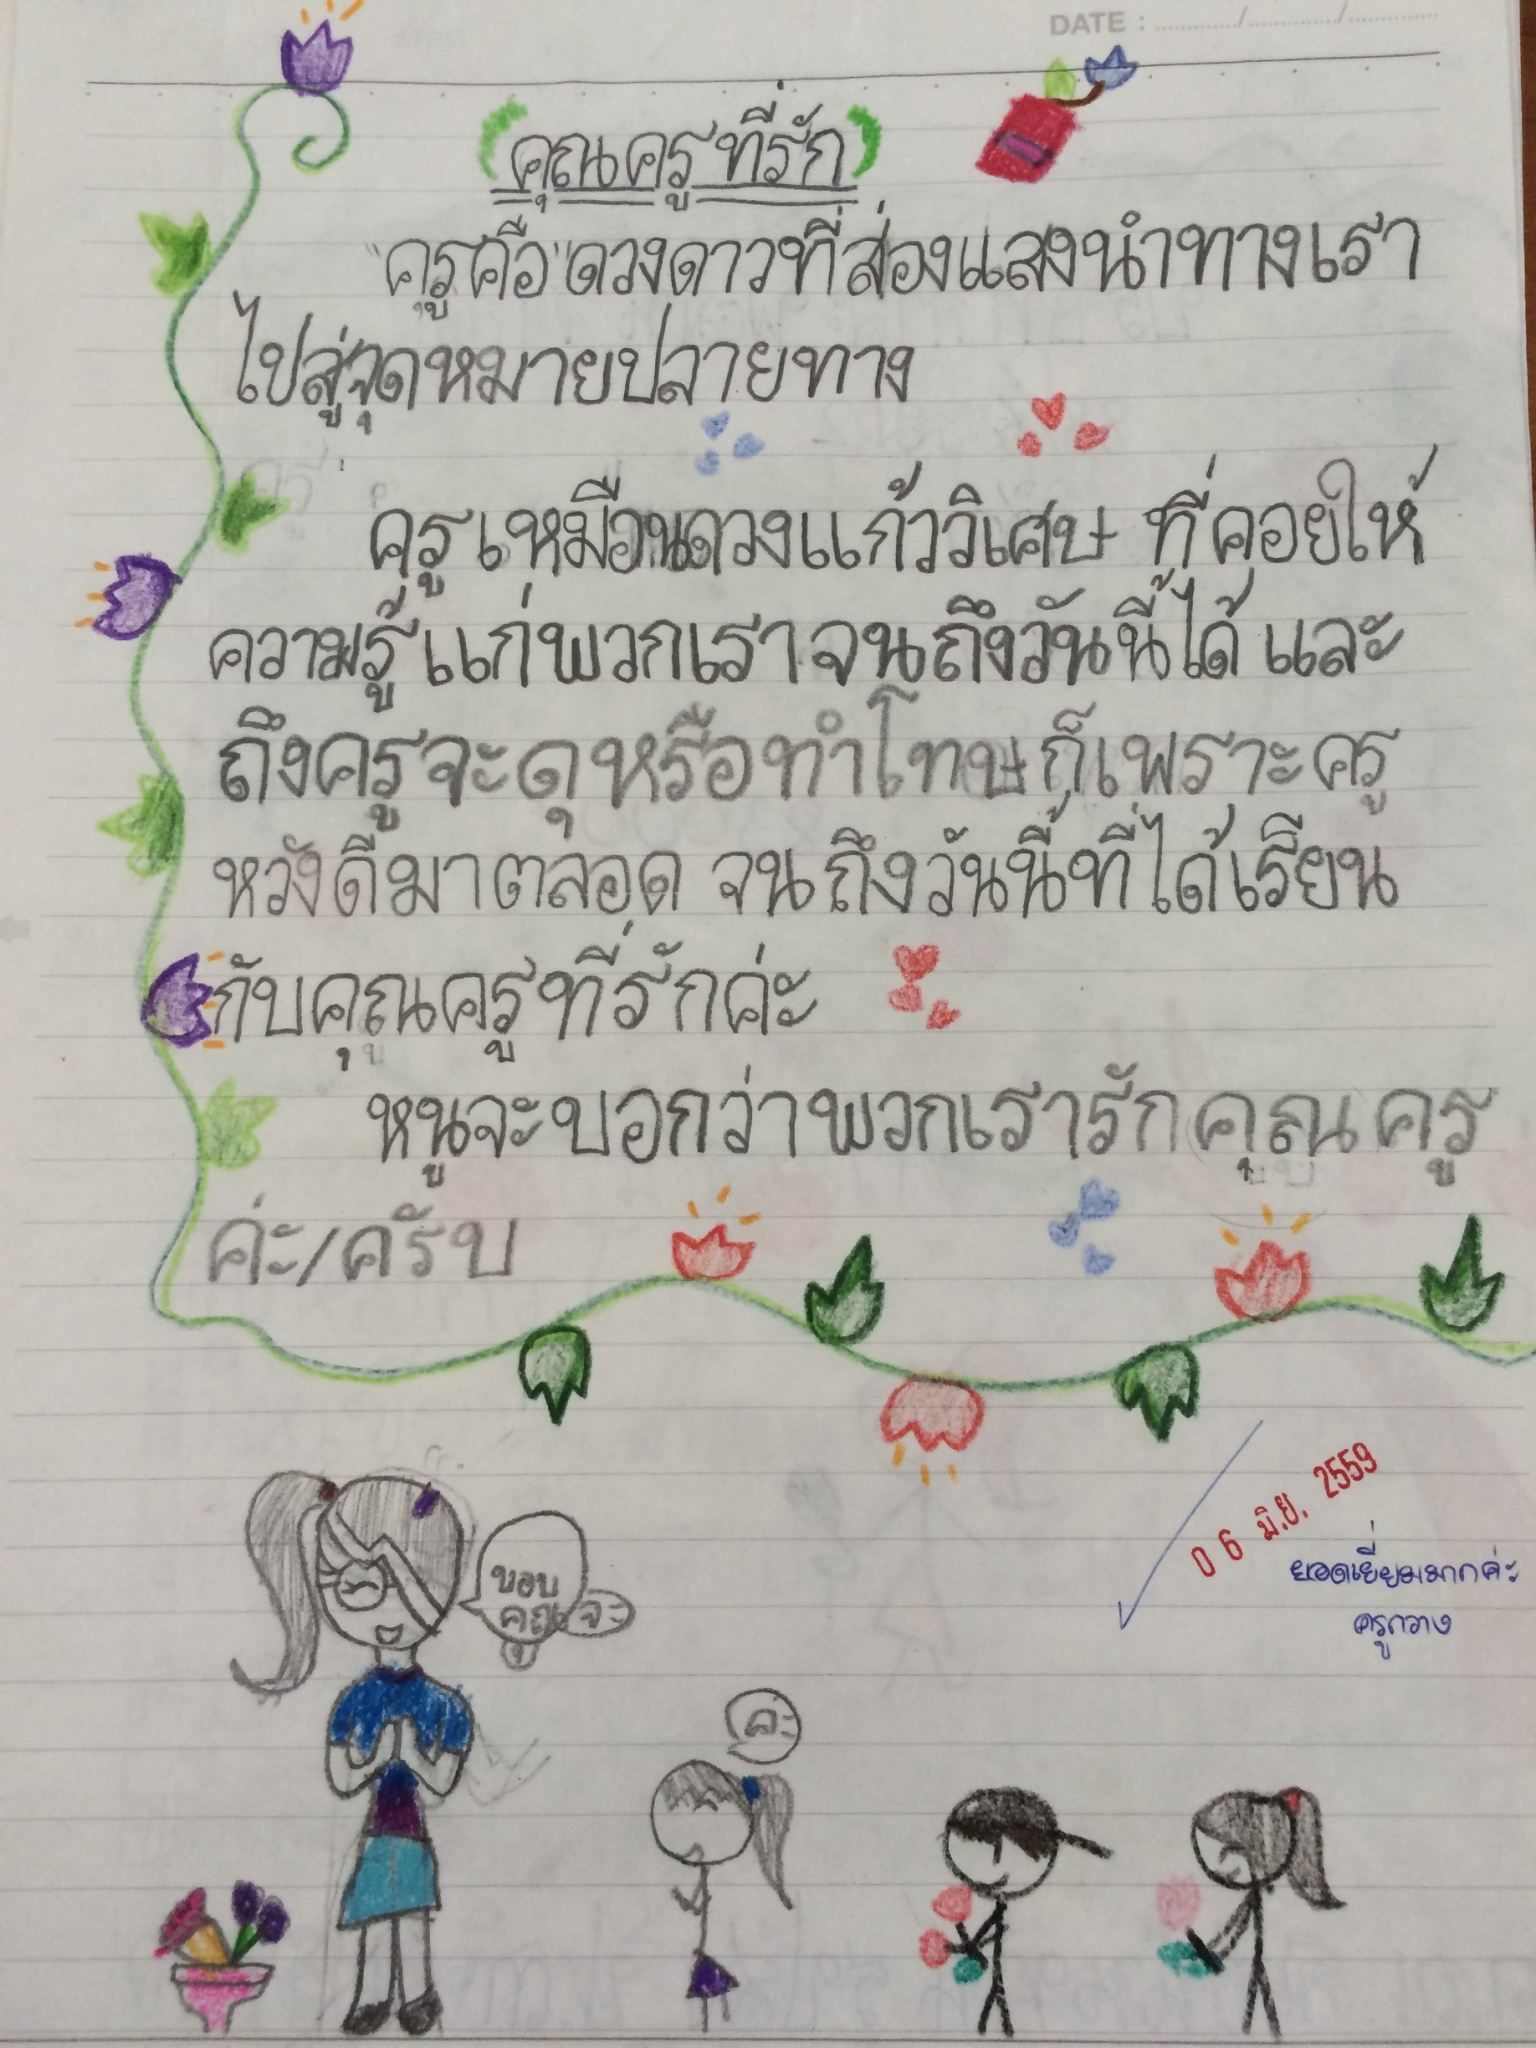 DATE : ............/............/............
(คุณครูที่รัก)
"ครูคือ"ดวงดาวที่ส่องแสงนำทางเรา
ไปสู่จุดหมายปลายทาง
ครูเหมือนดวงแก้ววิเศษ ที่คอยให้
ความรู้แก่พวกเราจนถึงวันนี้ได้ และ
ถึงครูจะดุหรือทำโทษก็เพราะครู
หวังดีมาตลอด จนถึงวันนี้ที่ได้เรียน
กับคุณครูที่รักค่ะ
หนูจะบอกว่าพวกเรารักคุณครู
ค่ะ/ครับ
0 6 มิ.ย. 2559
ยอดเยี่ยมมากค่ะ
ครูกวาง
ขอบ
คุณจ้ะ
ค่ะ